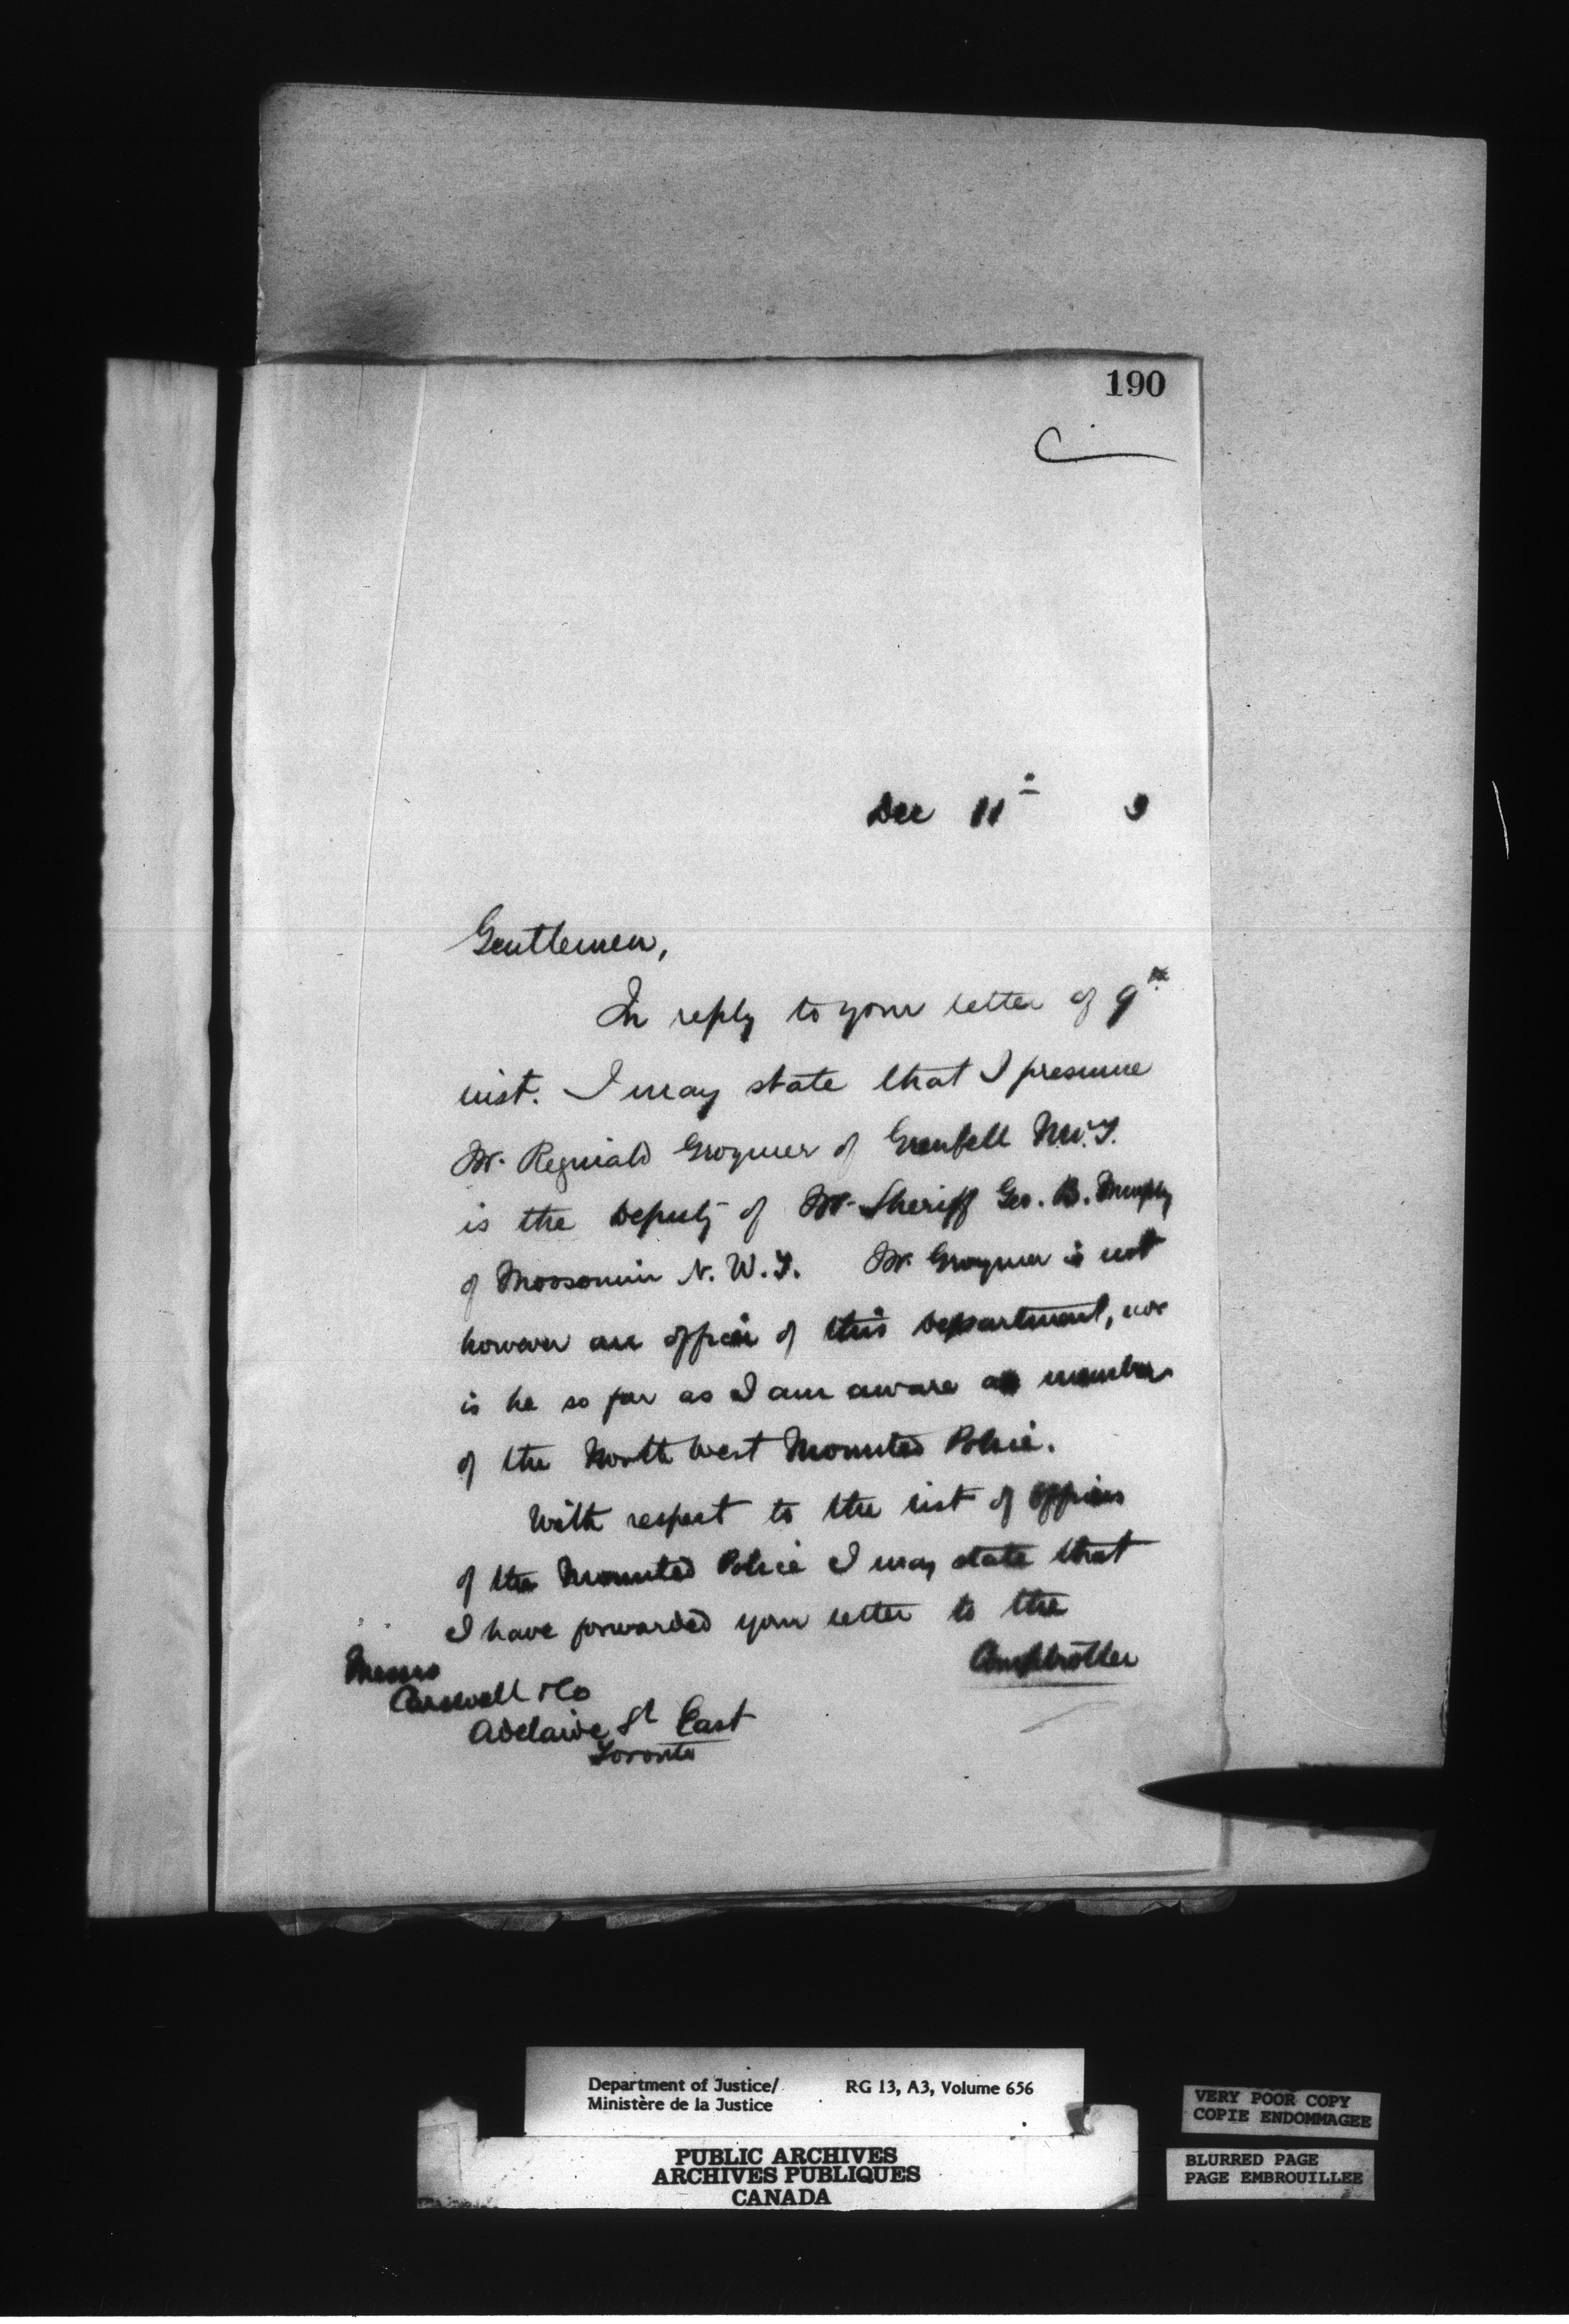 190
Dec 11th 3
Gentlemen,
In reply to your letter of 9th
inst. I may state that I presume
Mr. Reginald Grogmer of Grenfell N.W.T.
is the Deputy of Mr. Sheriff Geo. B. Murphy
of Moosomin N. W. T. Mr. Grogmer is not
however an officer of this Department, nor
is he so far as I am aware a member
of the North West Mounted Police.
With respect to the list of officers
of the Mounted Police I may state that
I have forwarded your letter to the
Comptroller
Messrs
Carswell & Co
Adelaide St East
Toronto
Department of Justice/ RG 13, A3, Volume 656
Ministère de la Justice
PUBLIC ARCHIVES
ARCHIVES PUBLIQUES
CANADA
VERY POOR COPY
COPIE ENDOMMAGEE
BLURRED PAGE
PAGE EMBROUILLEE